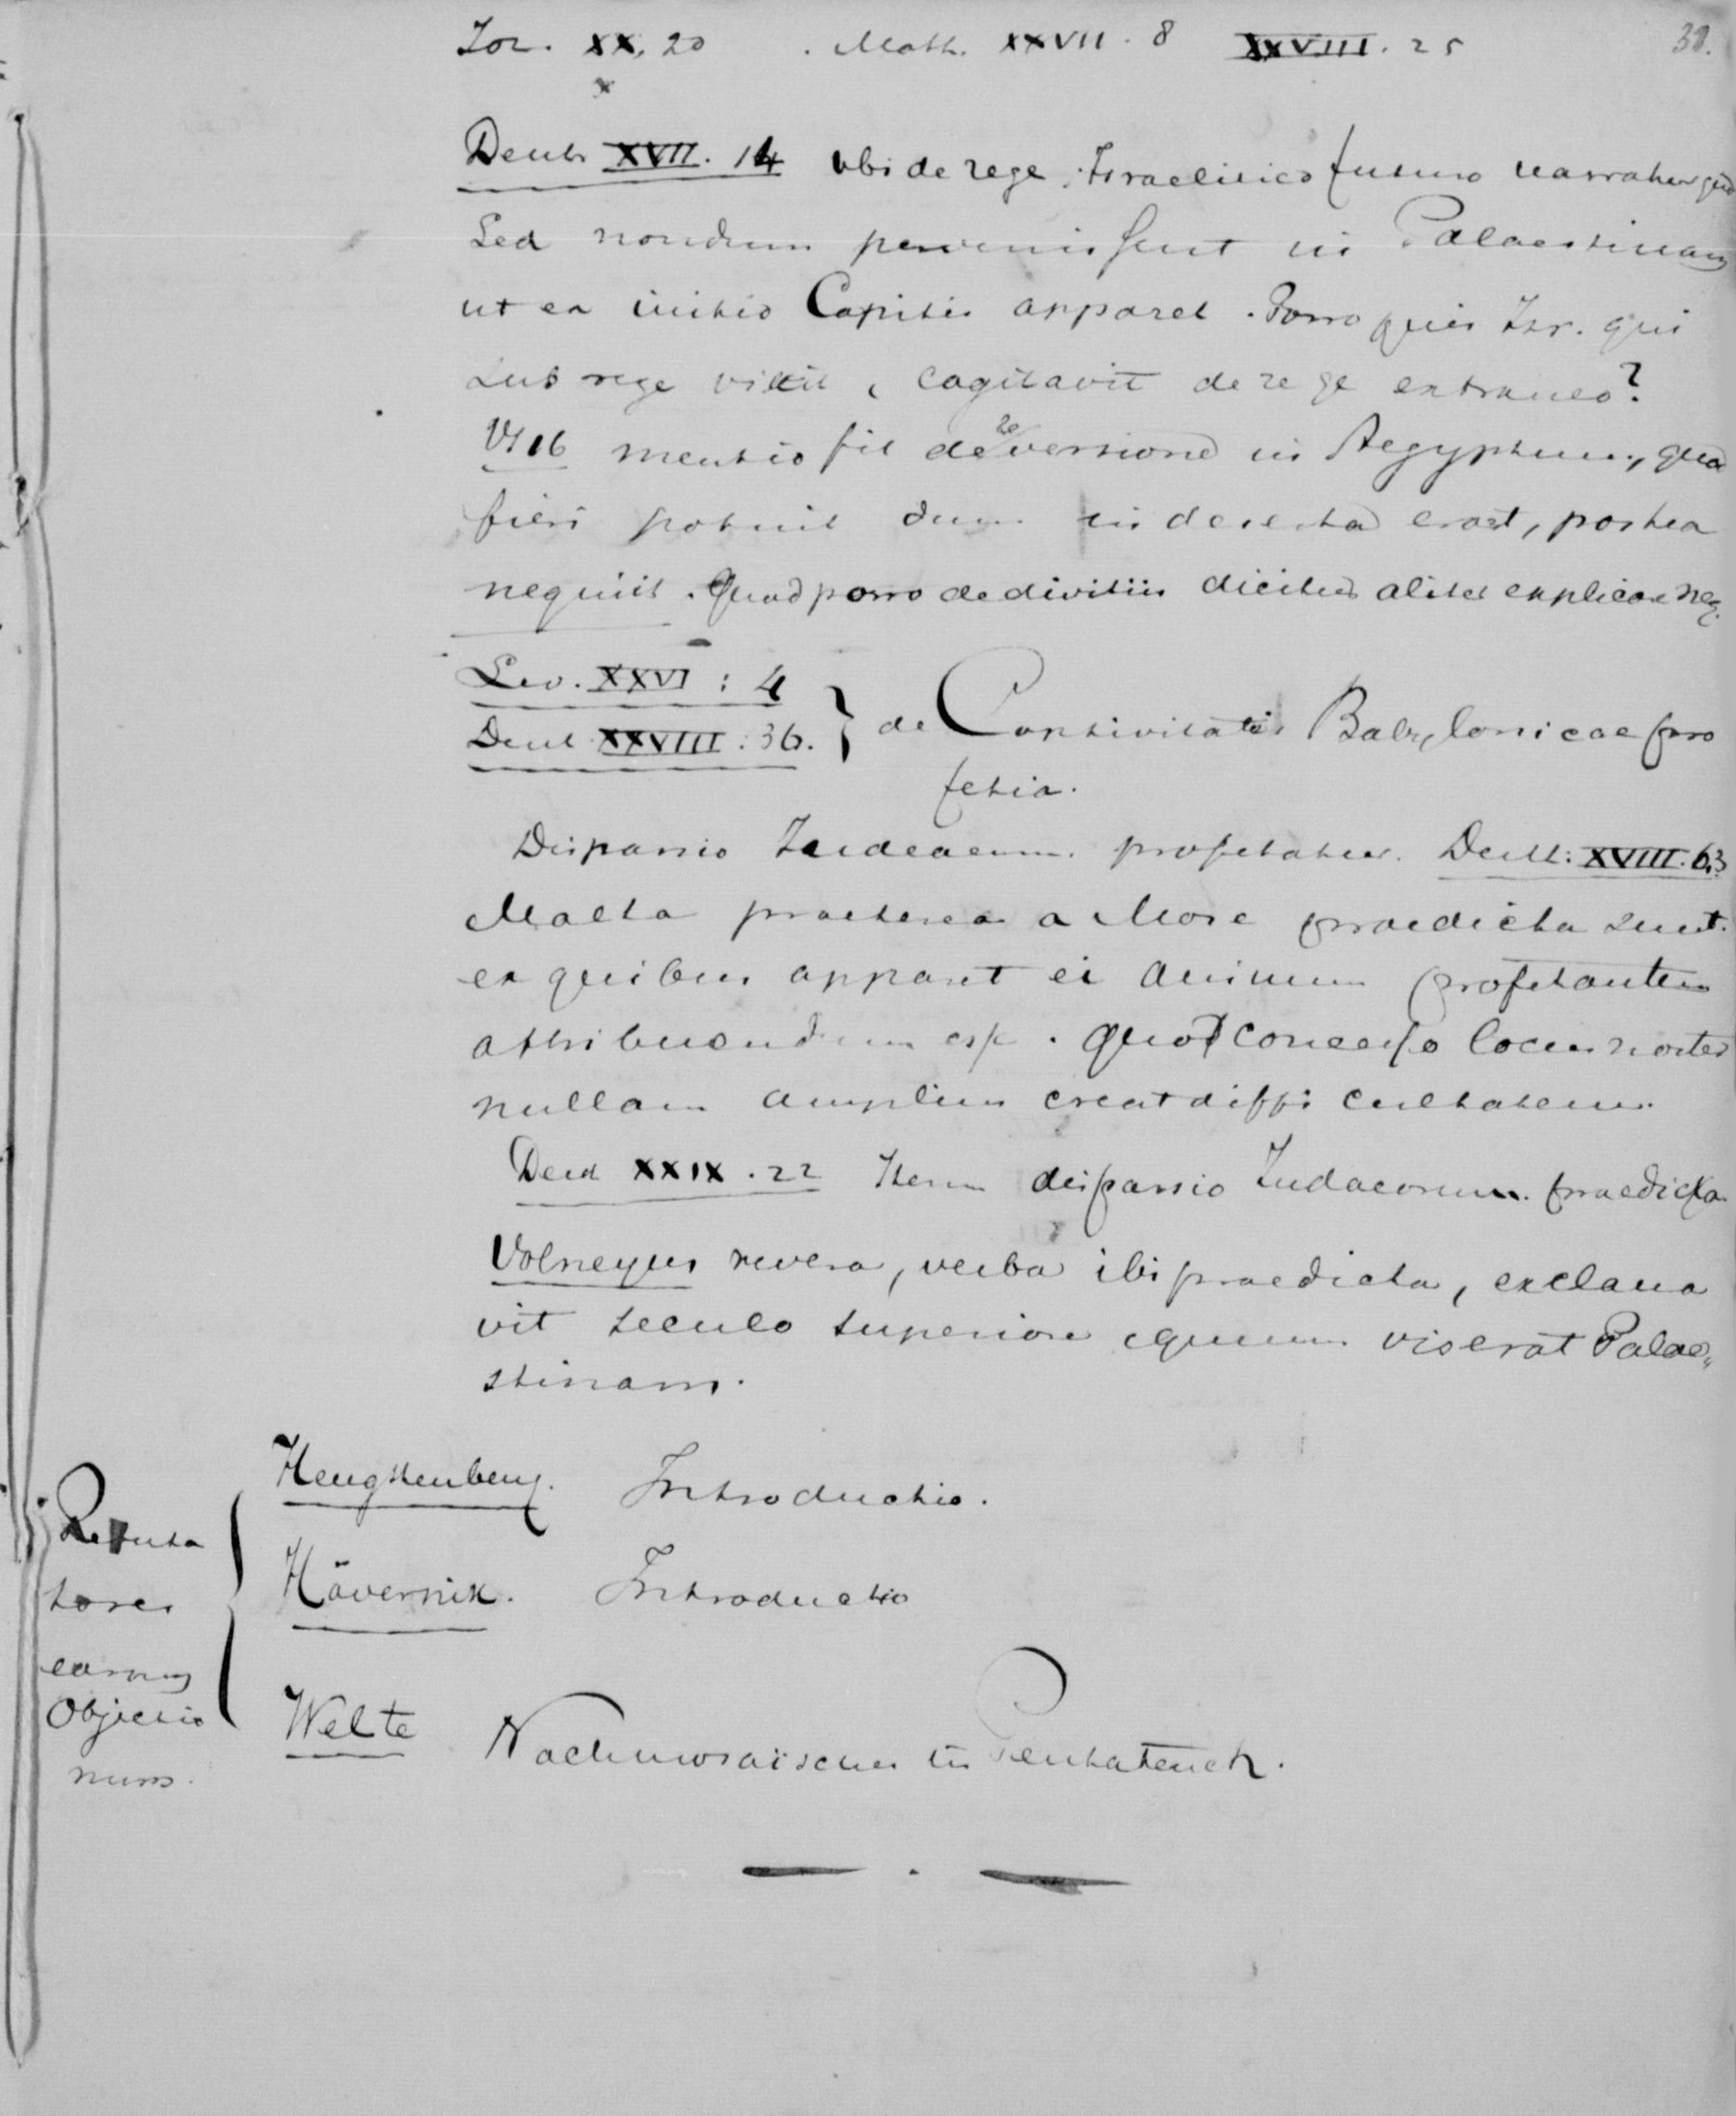 Jos. XX, 20 . Math. XXVII. 8 XXVIII. 25
38.
x
Deut. XVII. 14 ubi de rege Israelitico futuro narratur
Sed nondum pervenissent in Palaestinam
ut ex initio Capitis apparet. Porro quis Isr. qui
sub rege vixit, cogitavit de rege extraneo?
Vs 16 mentio fit de reversione in Aegyptum, quod
fieri potuit dum in deserto erat, postea
nequiit. Quod porro de divitiis dicitur aliter explicare neq.
Lev. XXVI : 4
Deut XXVIII : 36. } de Captivitatis Babylonicae pro
fetia.
Disparsio Judaeorum profetatur. Deut: XVIII. 63
Multa praeterea a Mose praedicta sunt.
ex quibus apparet ei animum profetantem
attribuendum esse. Quod concesso locus noster
nullam amplius creat difficultatem.
Deut XXIX. 22 Iterum disparsio Judaeorum praedicta
Volneyus revera, verba ibi praedicta, exclama
vit seculo superiore quum viserat Palae„
stinam.
Hengstenberg. Introductio.
Refuta
tores
earum
Objectio
num.
Hävernik. Introductio
Welte Nachmosaisches in Pentateuch.